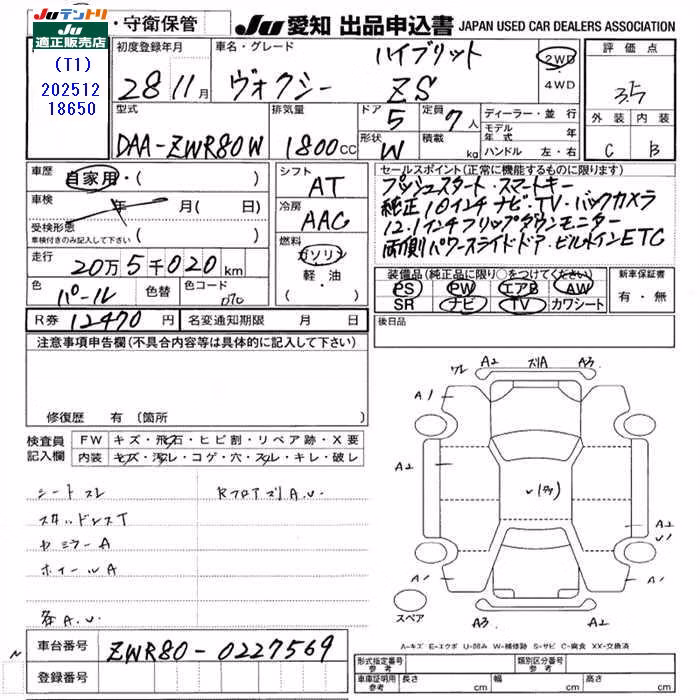 JUテントリ
JU
適正販売店
(T1)
202512
18650
・守衛保管
JU 愛知 出品申込書 JAPAN USED CAR DEALERS ASSOCIATION
初度登録年月
28 11月
車名・グレード
ハイブリット
ヴォクシー ZS
2WD
・
4WD
評価点
3.5
外装 内装
C B
型式
DAA-ZWR80W
排気量
1800cc
ドア 5
定員 7人
形状 W
積載 kg
ディーラー・並行
モデル年式 年
ハンドル 左・右
車歴
自家用・( )
車検
年 月( 日)
受検形態
車検付きのみ記入して下さい ( )
走行
20万5千020km
色
パール
色替
色コード
070
シフト
AT
冷房
AAC
燃料
ガソリン
・
軽・油
( )
セールスポイント(正常に機能するものに限ります)
プッシュスタート・スマートキー
純正10インチナビ・TV・バックカメラ
12.1インチフリップダウンモニター
両側パワースライドドア・ビルトインETC
装備品(純正品に限り○をつけてください)
PS PW エアB AW
SR ナビ TV カワシート
新車保証書
有・無
R券 12470円
名変通知期限 月 日
後日品
注意事項申告欄(不具合内容等は具体的に記入して下さい)
修復歴 有(箇所 )
検査員
記入欄
FW キズ・飛石・ヒビ割・リペア跡・X要
内装 キズ・汚レ・コゲ・穴・スレ・キレ・破レ
シートスレ
スタッドレスT
ドミラーA
ホイールA
各A.U.
RフロアズリA.U.
ワレ A2 ズリA A3
A1
A2
A2
U1
A1
A1
A3 A2
スペア
A-キズ E-エクボ U-凹み W-補修跡 S-サビ C-腐食 XX-交換済
車台番号 ZWR80-0227569
登録番号
形式指定番号
参考
類別区分番号
参考
車庫証明用
参考
長さ cm 幅 cm 高さ cm